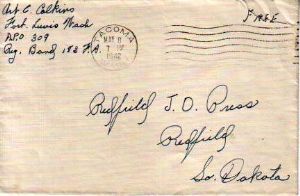 Art C. Calkins
Fort Lewis Wash
APO 309
Reg. Band 182 F.A.
Free
TACOMA
MAR 11
7 PM
1942
Redfield S.D. Press
Redfield
So. Dakota